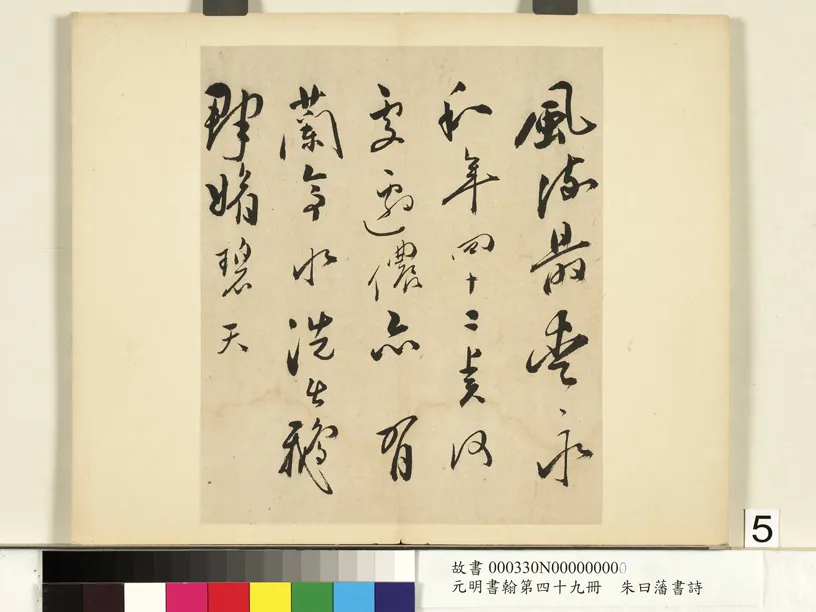 風流最愛永
和年四十二賢何
處邊儂亦有
蘭亭水洗出鵝
群媚碧天
5
故書 000330N000000000
元明書翰第四十九冊　朱曰藩書詩